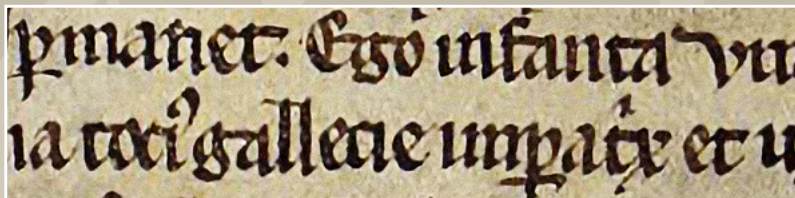 ꝑmanet. Ego infanta vrr
na tociꝰ gallecie imꝑatͥx et u